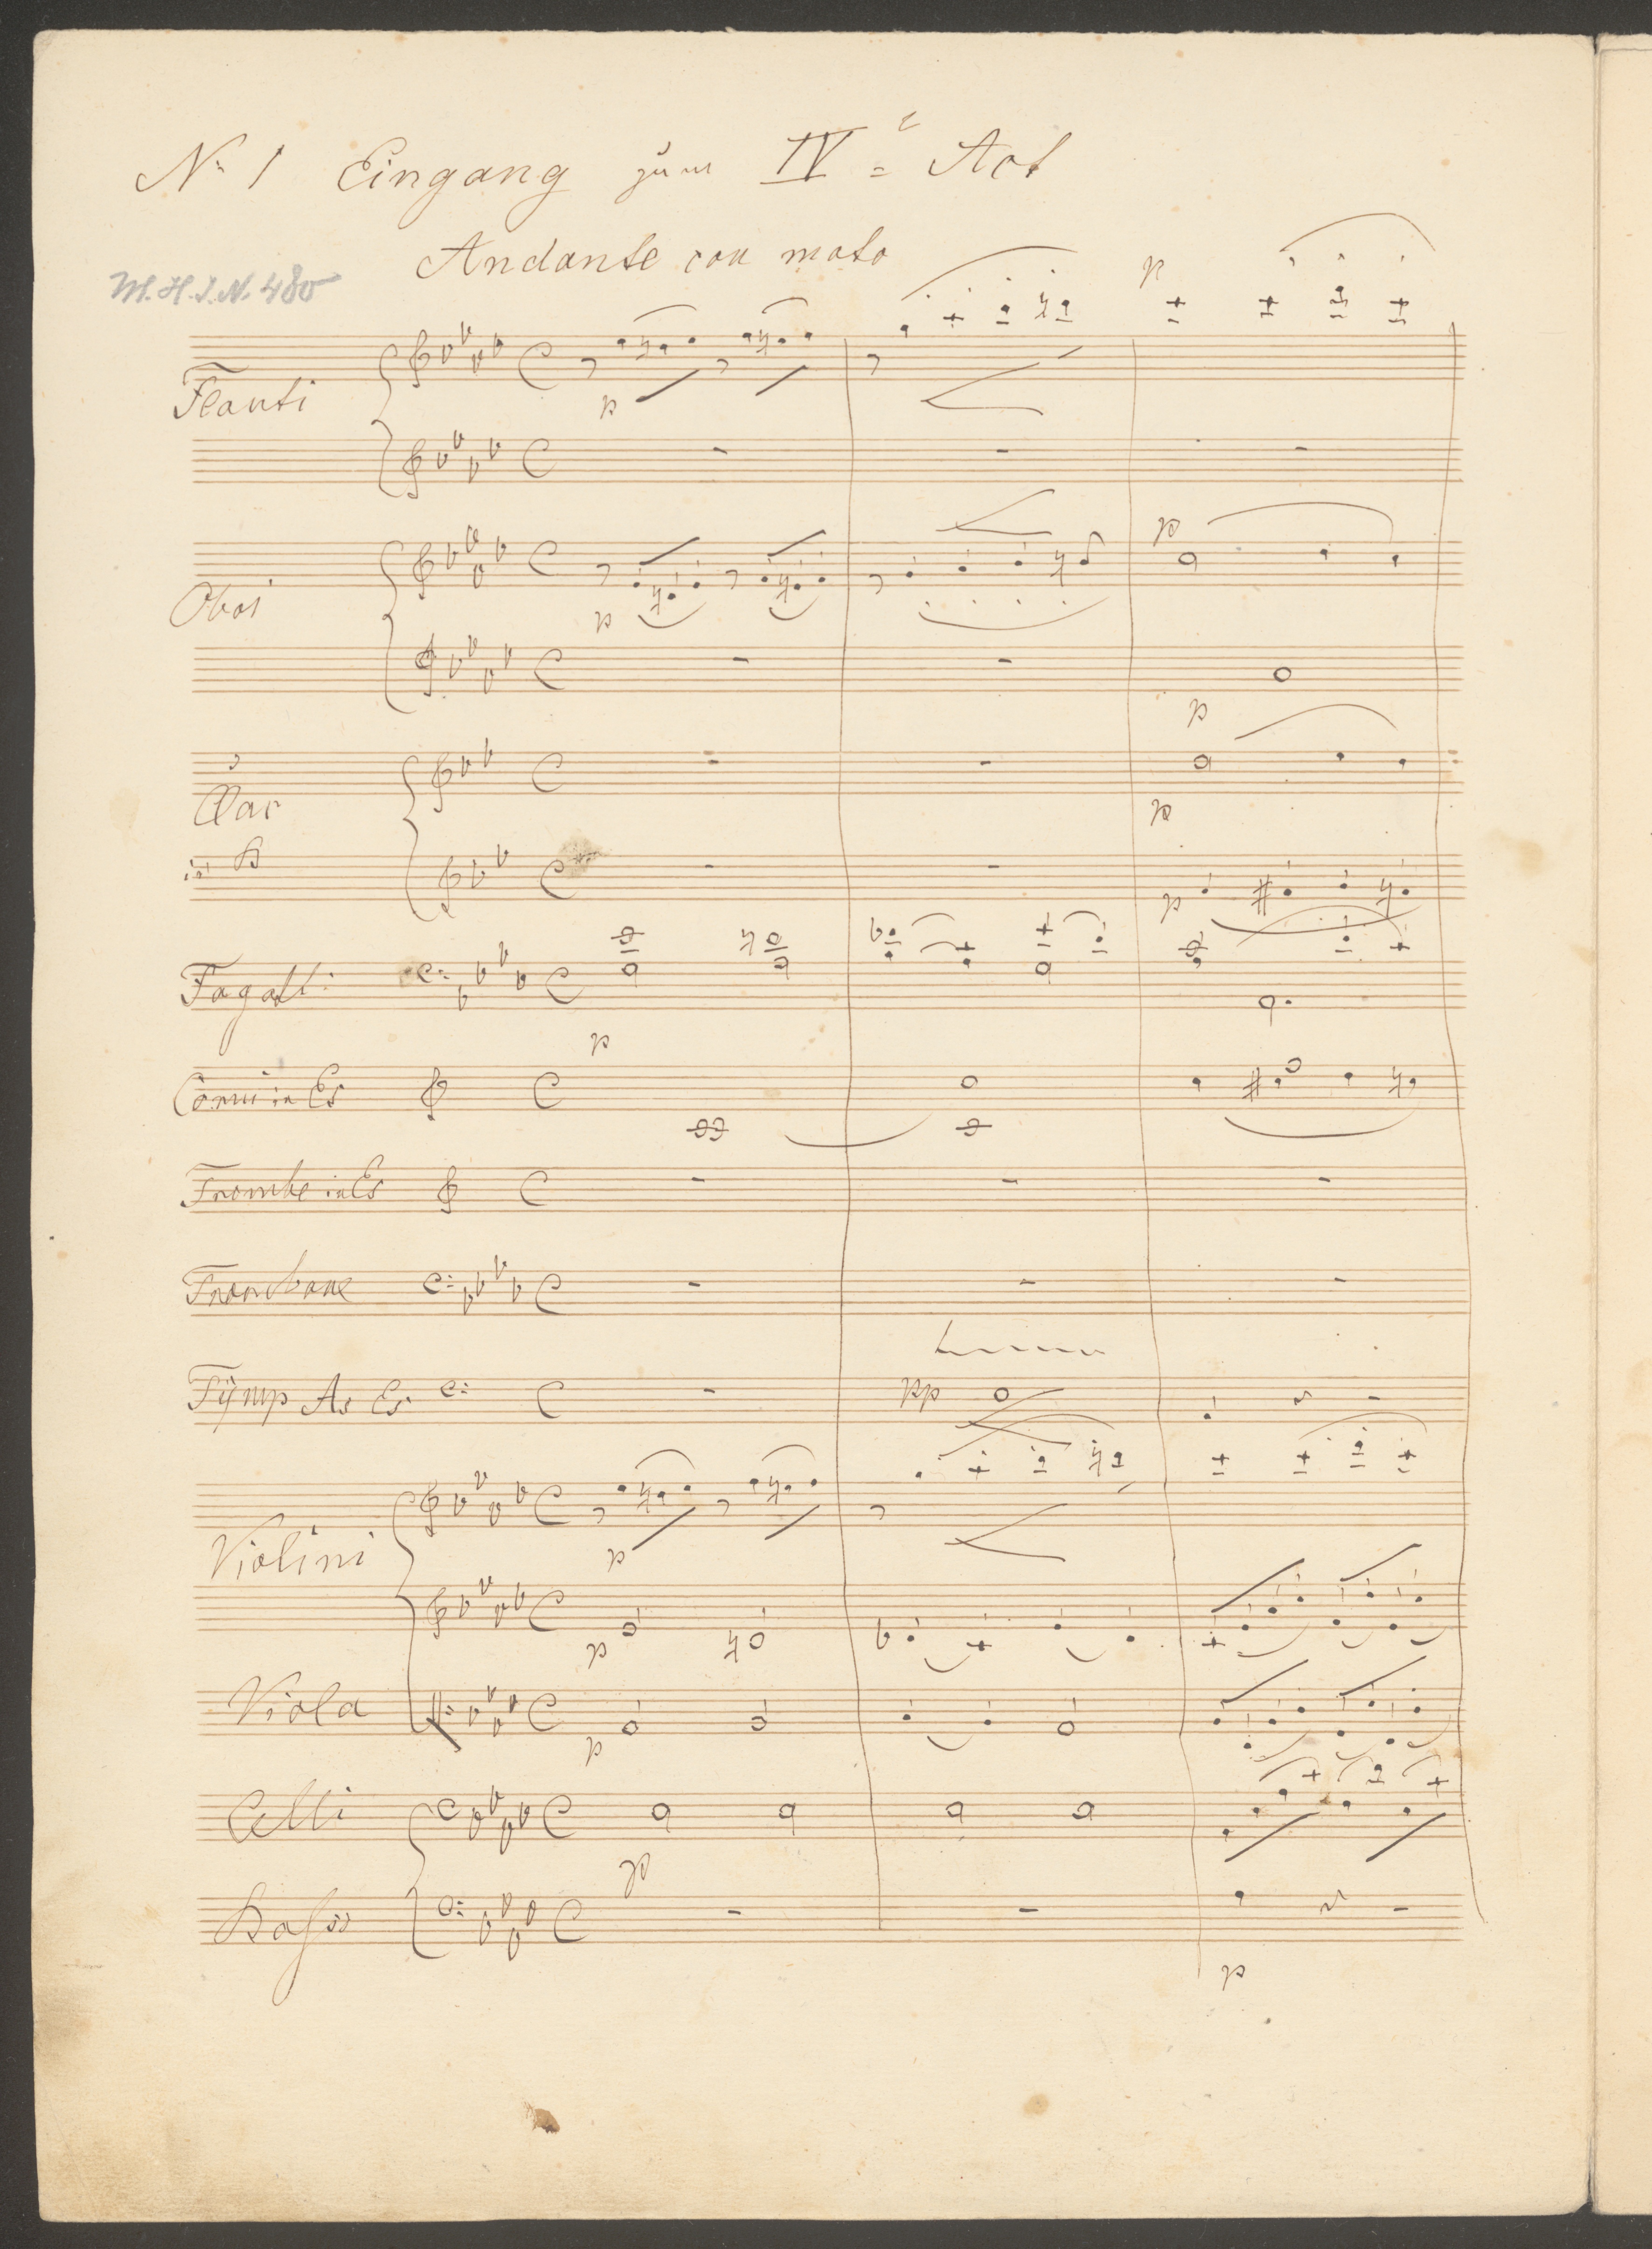 No 1 Eingang zum IVe Act
Andante con moto
M.H.I.N. 480
Flauti
p
p
Oboi
p
p
p
Clar
in B
p
p
Fagotti
p
Corni in Es
Trombe in Es
Trombone
Tÿmp As Es
pp
Violini
p
p
Viola
p
Celli
p
Bassi
p